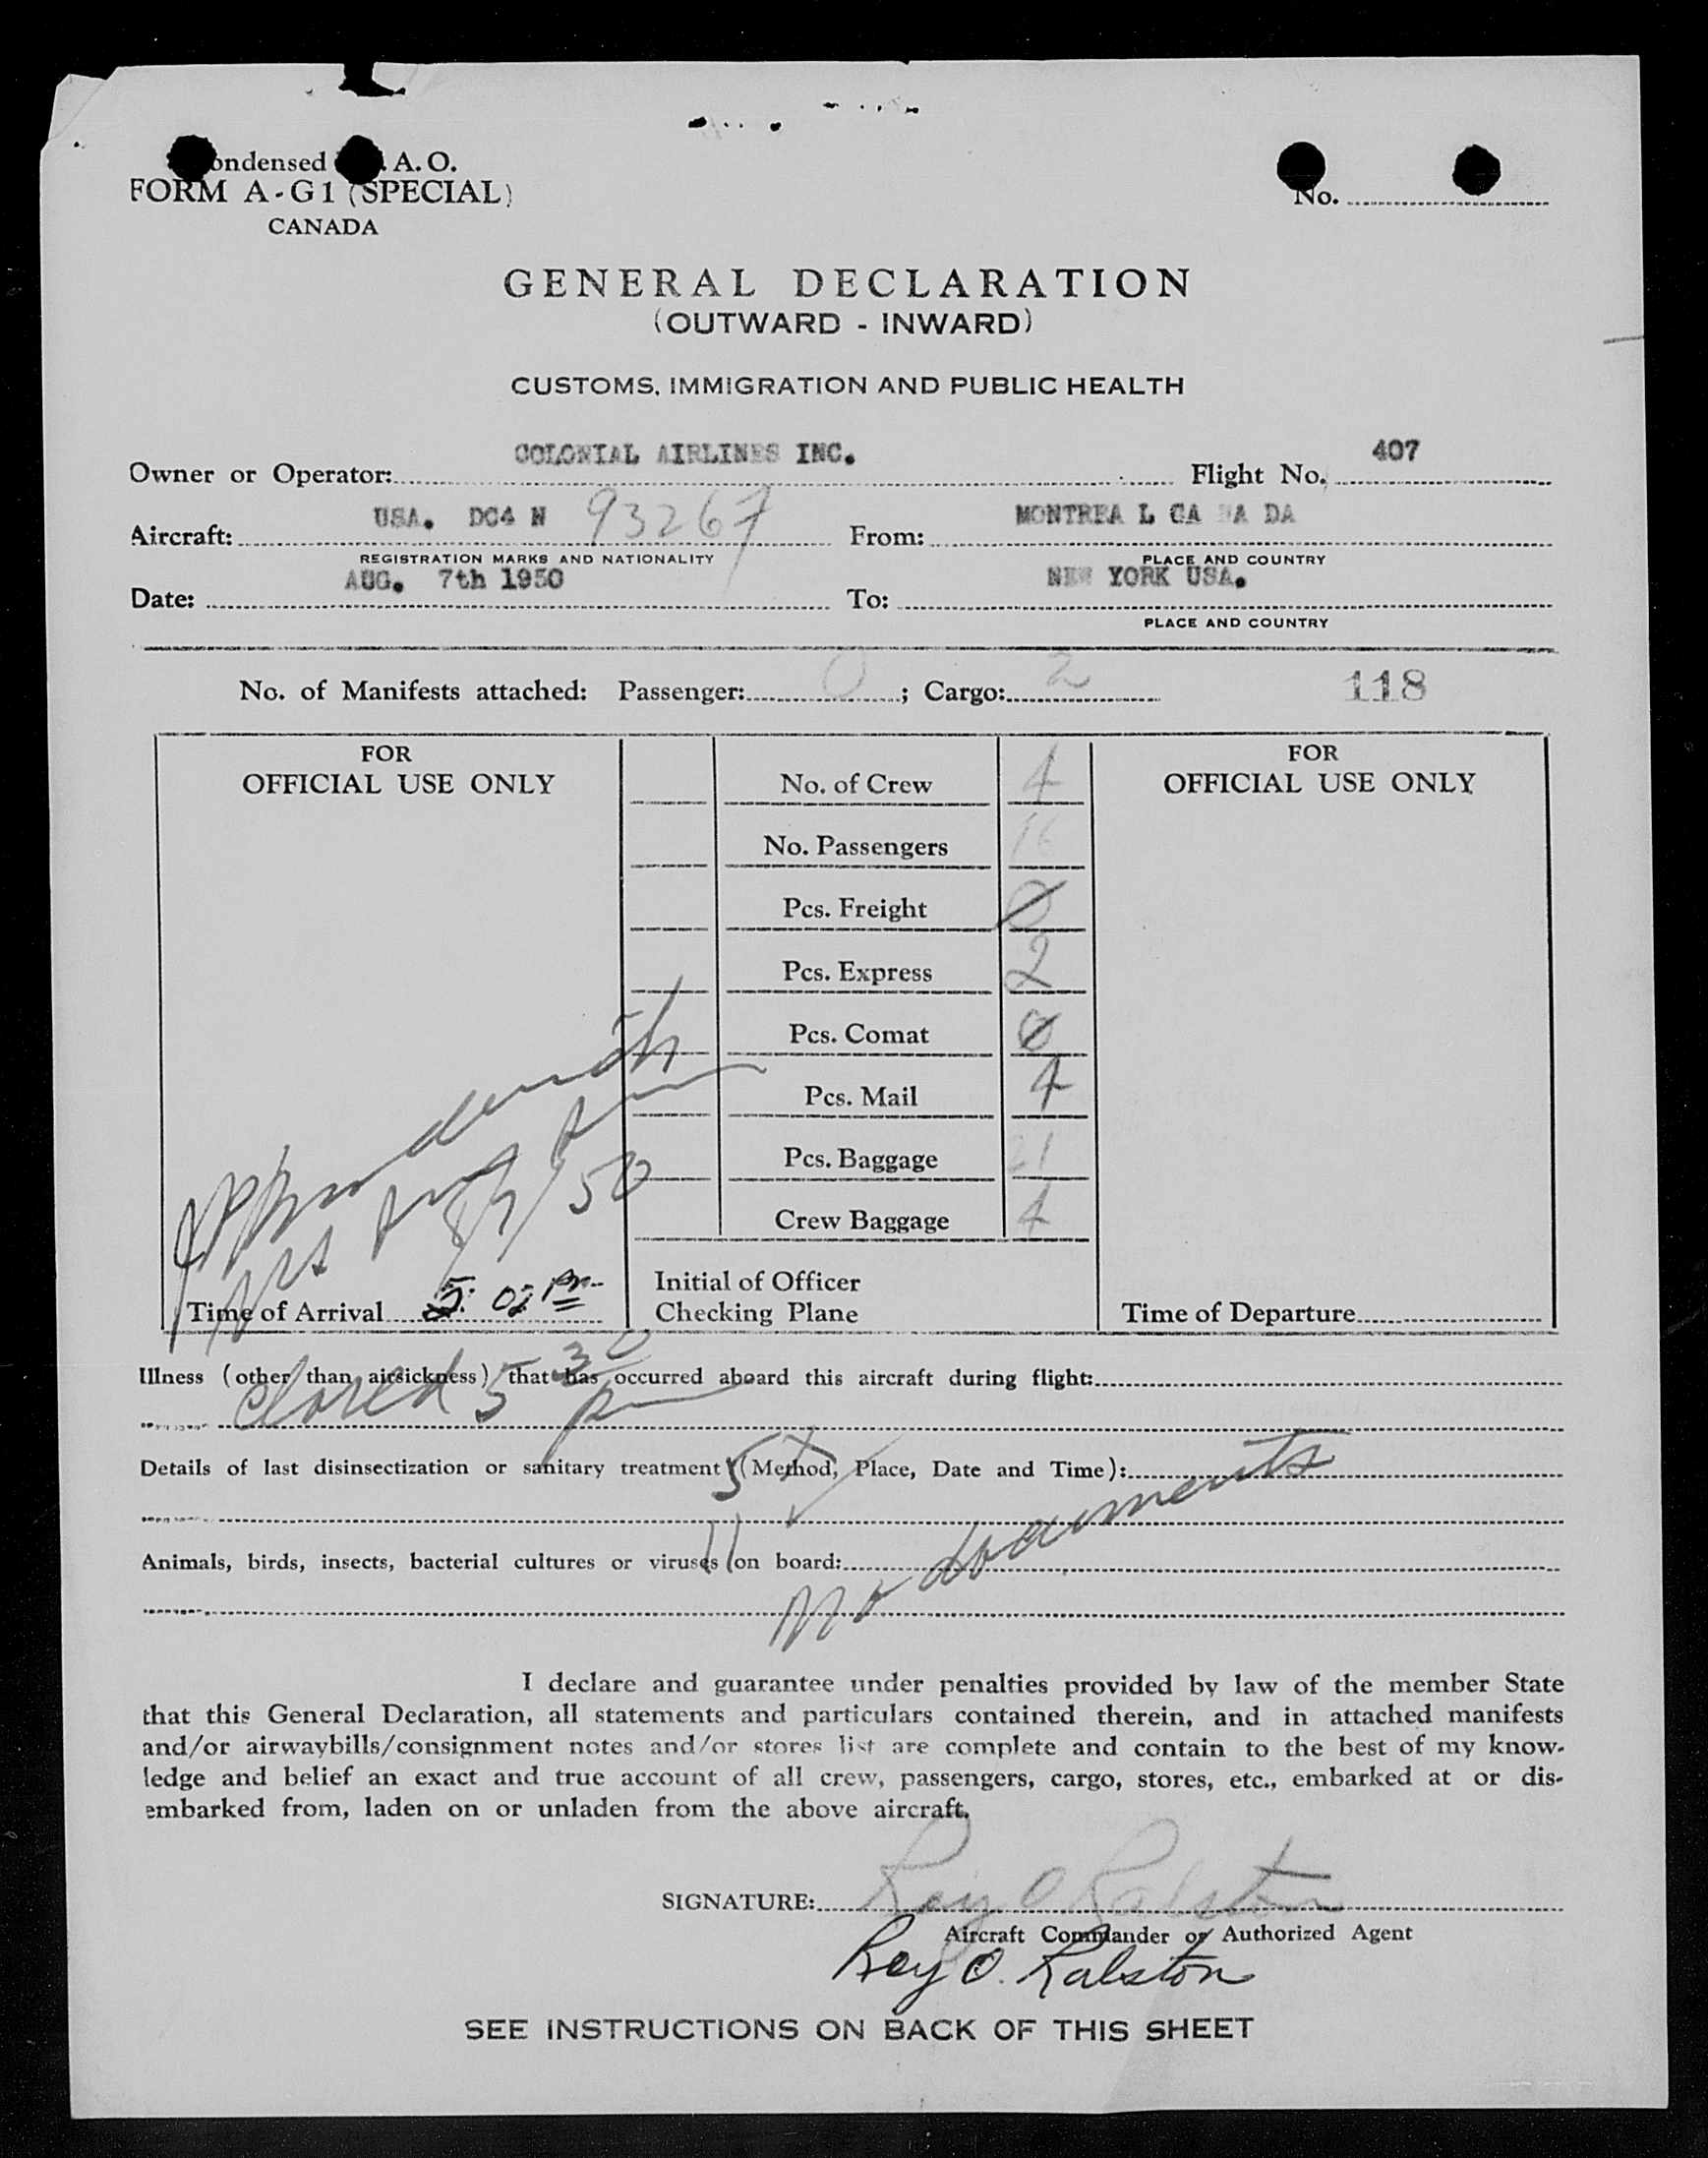 ondensed . A. O.
FORM A-G1 (SPECIAL)
CANADA
No.
GENERAL DECLARATION
(OUTWARD - INWARD)
CUSTOMS, IMMIGRATION AND PUBLIC HEALTH
Owner or Operator: COLONIAL AIRLINES INC. Flight No. 407
Aircraft: USA. DC4 N 93267 From: MONTREA L CA NA DA
REGISTRATION MARKS AND NATIONALITY PLACE AND COUNTRY
Date: AUG. 7th 1950 To: NEW YORK USA.
PLACE AND COUNTRY
No. of Manifests attached: Passenger: 0 ; Cargo: 2 118
FOR
OFFICIAL USE ONLY
No. of Crew 4
No. Passengers 16
Pcs. Freight 0
Pcs. Express 2
Pcs. Comat 0
Pcs. Mail 4
Pcs. Baggage 21
Crew Baggage 4
FOR
OFFICIAL USE ONLY
8/7/50
Time of Arrival 5:02 Pm
Initial of Officer
Checking Plane
Time of Departure
Illness (other than airsickness) that has occurred aboard this aircraft during flight:
closed 5 30 p
Details of last disinsectization or sanitary treatment (Method, Place, Date and Time):
Animals, birds, insects, bacterial cultures or viruses on board:
No documents
I declare and guarantee under penalties provided by law of the member State
that this General Declaration, all statements and particulars contained therein, and in attached manifests
and/or airwaybills/consignment notes and/or stores list are complete and contain to the best of my know-
ledge and belief an exact and true account of all crew, passengers, cargo, stores, etc., embarked at or dis-
embarked from, laden on or unladen from the above aircraft.
SIGNATURE: Roy O Ralston
Aircraft Commander or Authorized Agent
Roy O. Ralston
SEE INSTRUCTIONS ON BACK OF THIS SHEET